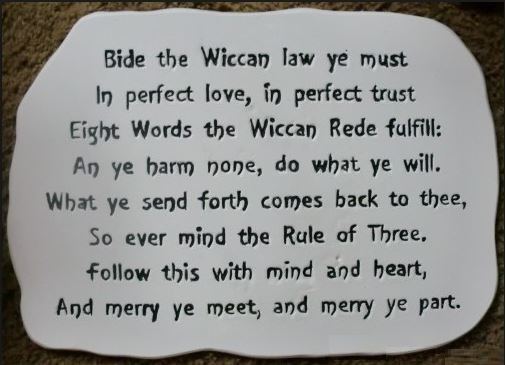 Bide the Wiccan law ye must
In perfect love, in perfect trust
Eight Words the Wiccan Rede fulfill:
An ye harm none, do what ye will.
What ye send forth comes back to thee,
So ever mind the Rule of Three.
Follow this with mind and heart,
And merry ye meet, and merry ye part.